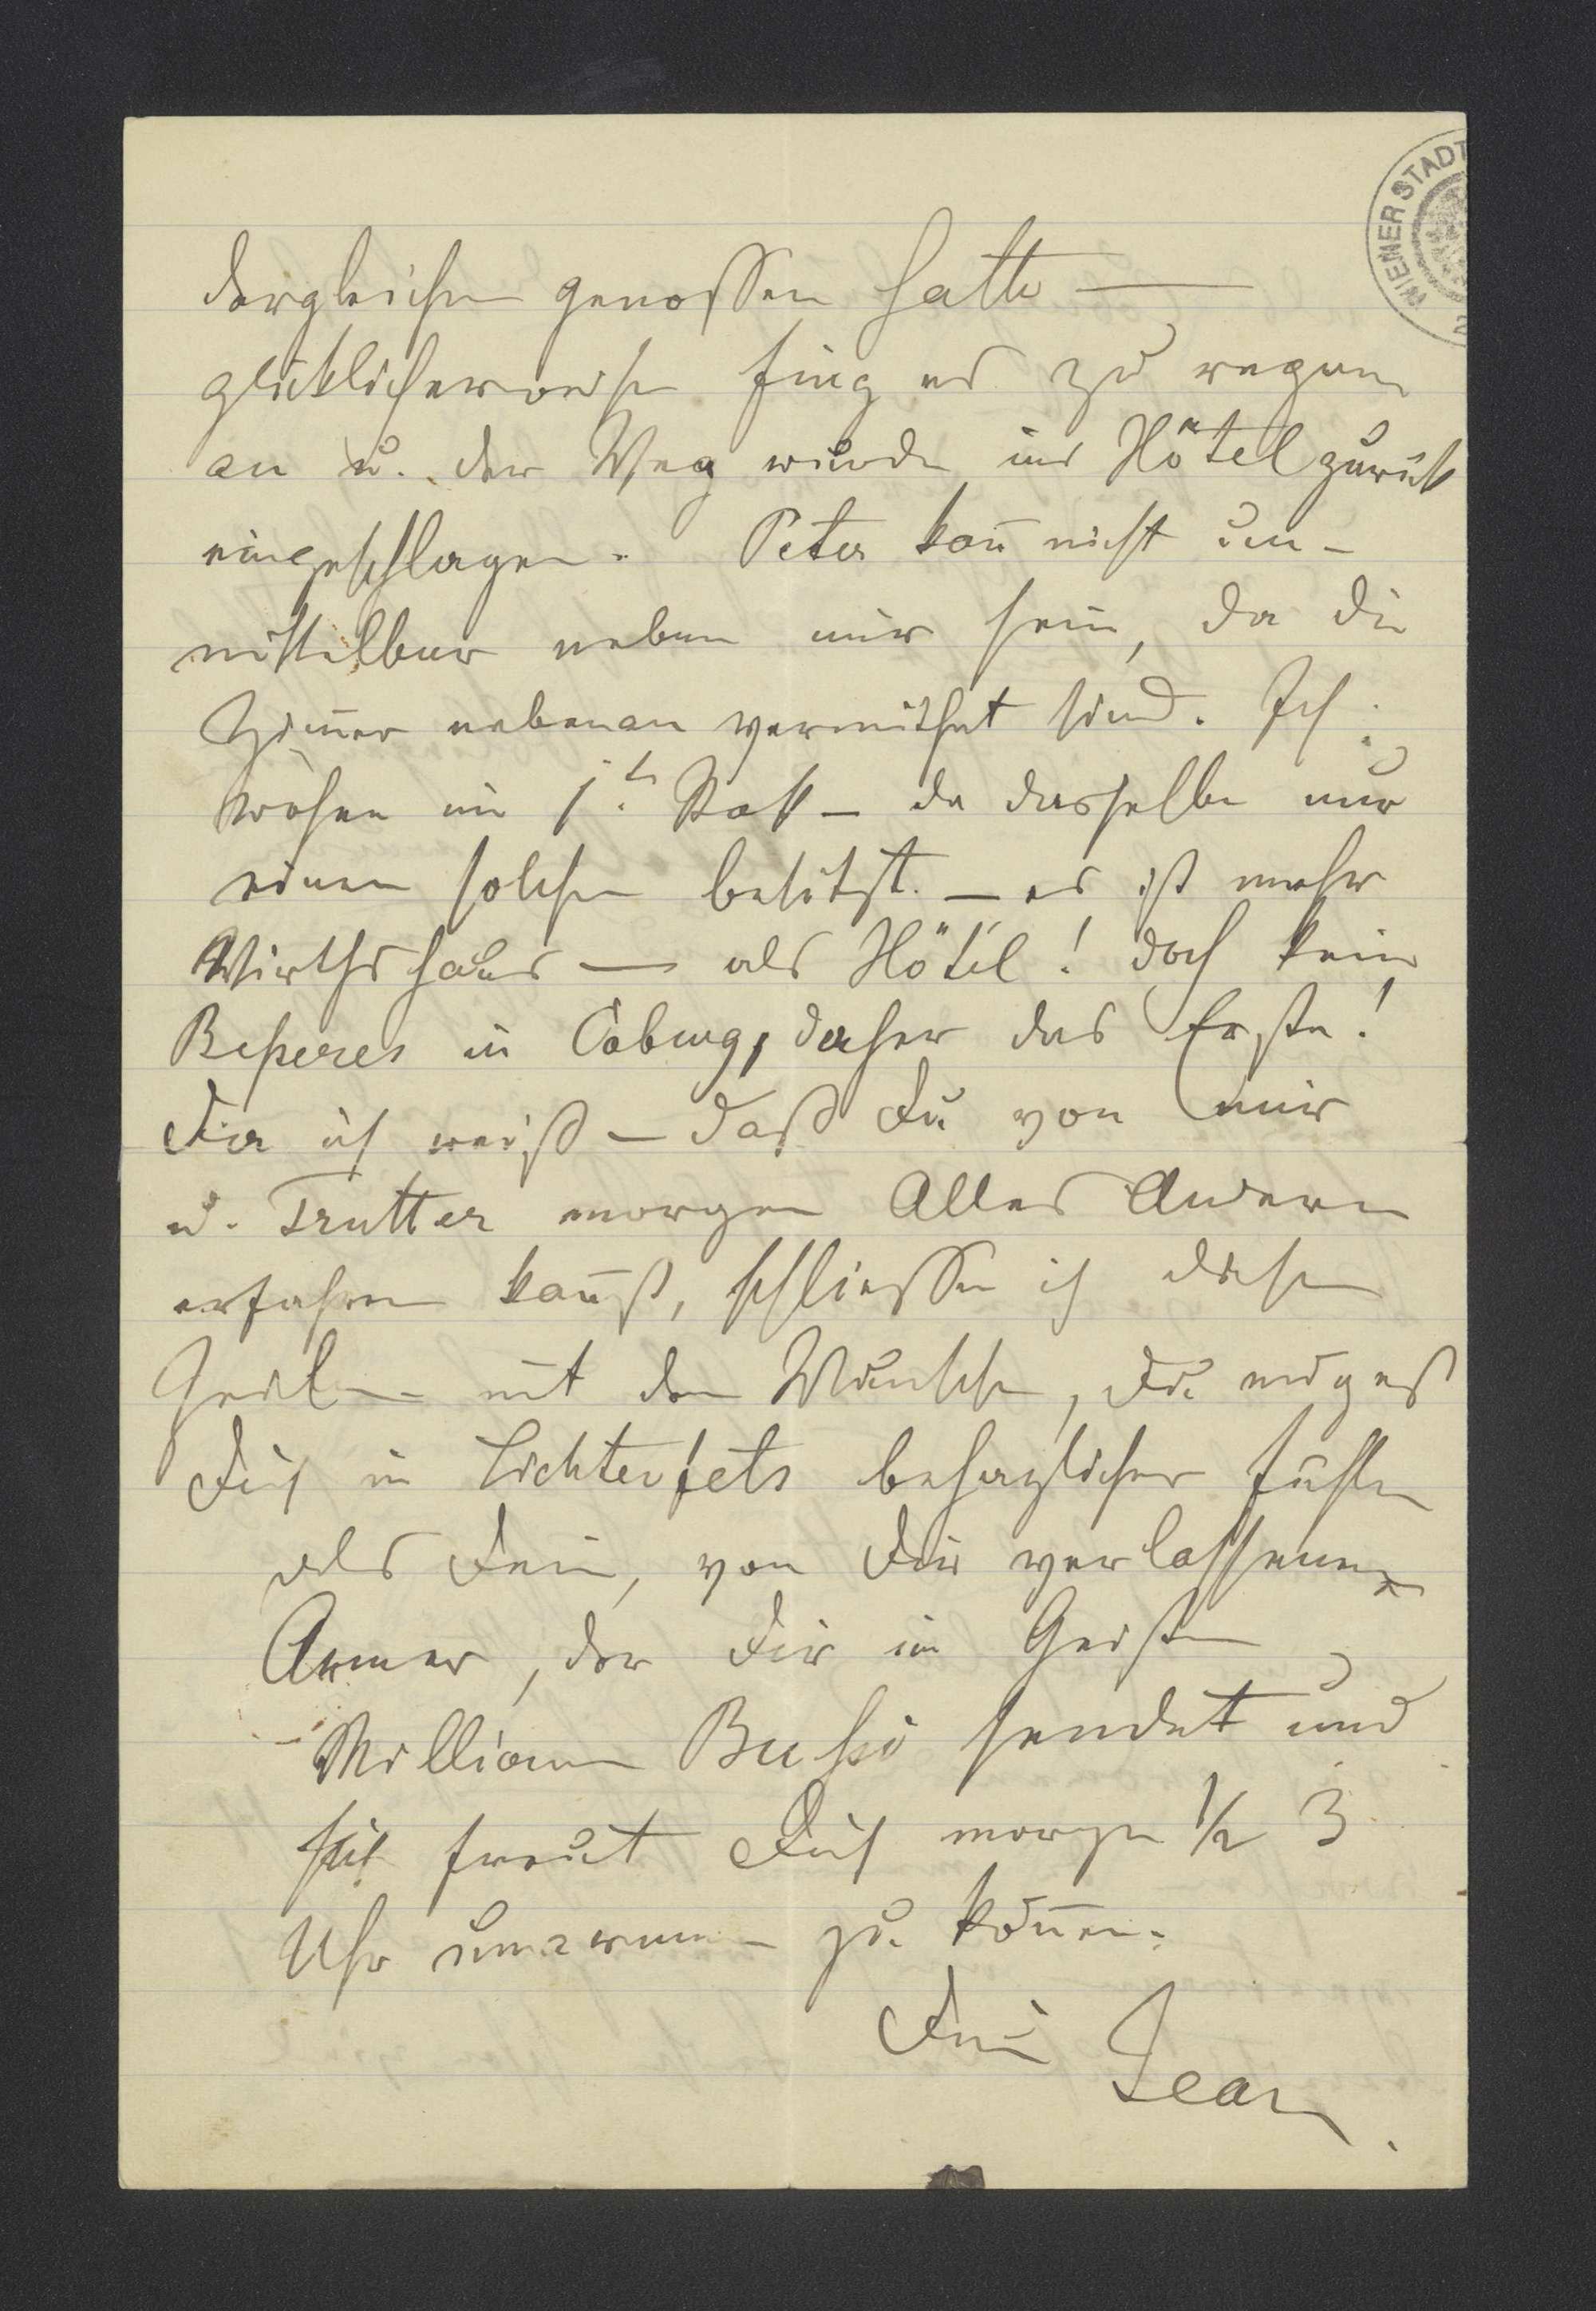 WIENER STADT
dergleichen genossen hatte —
glücklicherweise fing es zu regnen
an u. der Weg wurde ins Hôtel zurück
eingeschlagen. Peter kan̄ nicht un-
mittelbar neben mir sein, da die
Zim̄er nebenan vermiethet sind. Ich
wohne im 1t. Stock – da dasselbe nur
einen solchen besitzt. – es ist mehr
Wirthshaus — als Hôtel! doch kein
Besseres in Coburg, daher das Erste!
Da ich weiß – daß Du von mir
u. Trutter morgen Alles Andere
erfahren kan̄st, schliesse ich diese
Zeilen mit dem Wunsche, Du mögest
Dich in Lichtenfels behaglicher fühlen
als Dein, von Dir verlassener
Armer, der Dir im Geiste
Millionen Bussi sendet und
sich freut Dich morgen ½ 3
Uhr umarmen zu kön̄en.
Dein Jean